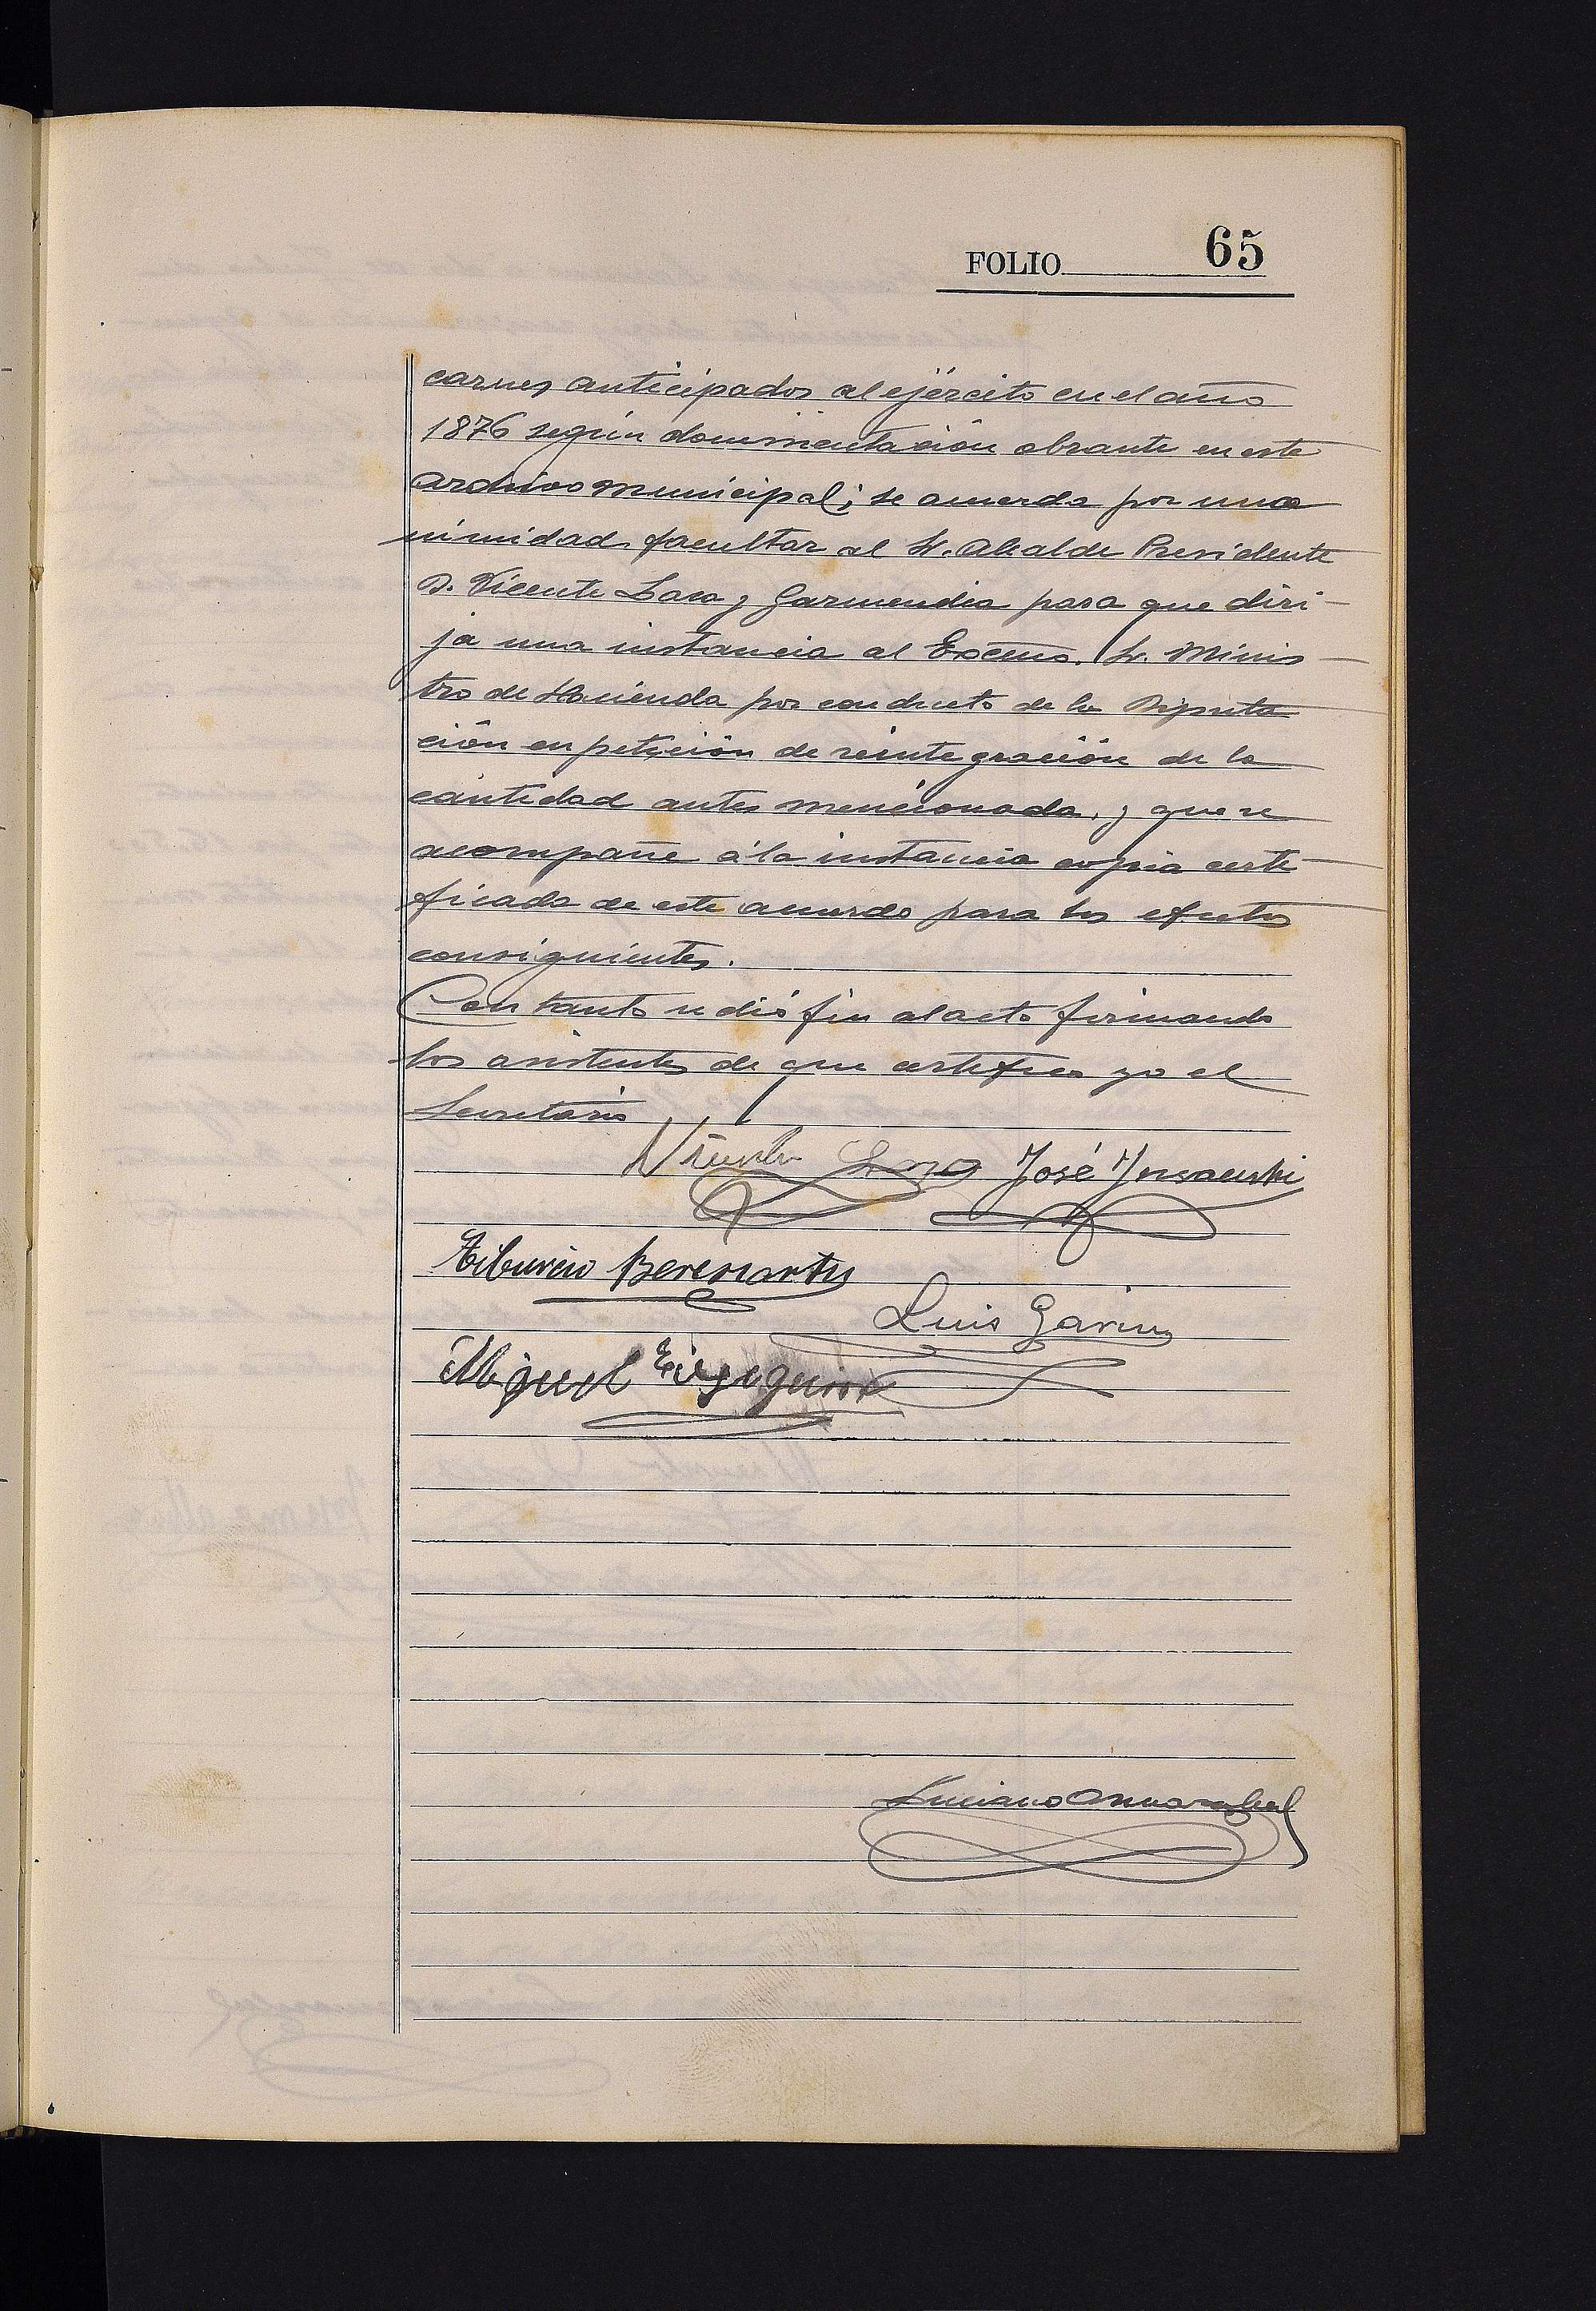 FOLIO 65
carnes anticipados al ejército en el año
1876 según documentación obrante en este
archivo municipal; se acuerda por una
nimidad facultar al Sr. Alcalde Presidente
D. Vicente Lasa y Garmendia para que diri-
ja una instancia al Excmo. Sr. Minis-
tro de Hacienda por conducto de la Diputa
ción en petición de reintegración de la
cantidad antes mencionada, y que se
acompañe á la instancia copia certi
ficada de este acuerdo para los efectos
consiguientes.
Con tanto se dió fin al acto firmando
los asistentes de que certifico yo el
Secretario
Vicente Lasa José Insausti
Tiburcio Beresiartu
Luis Garin
Miguel
Luciano